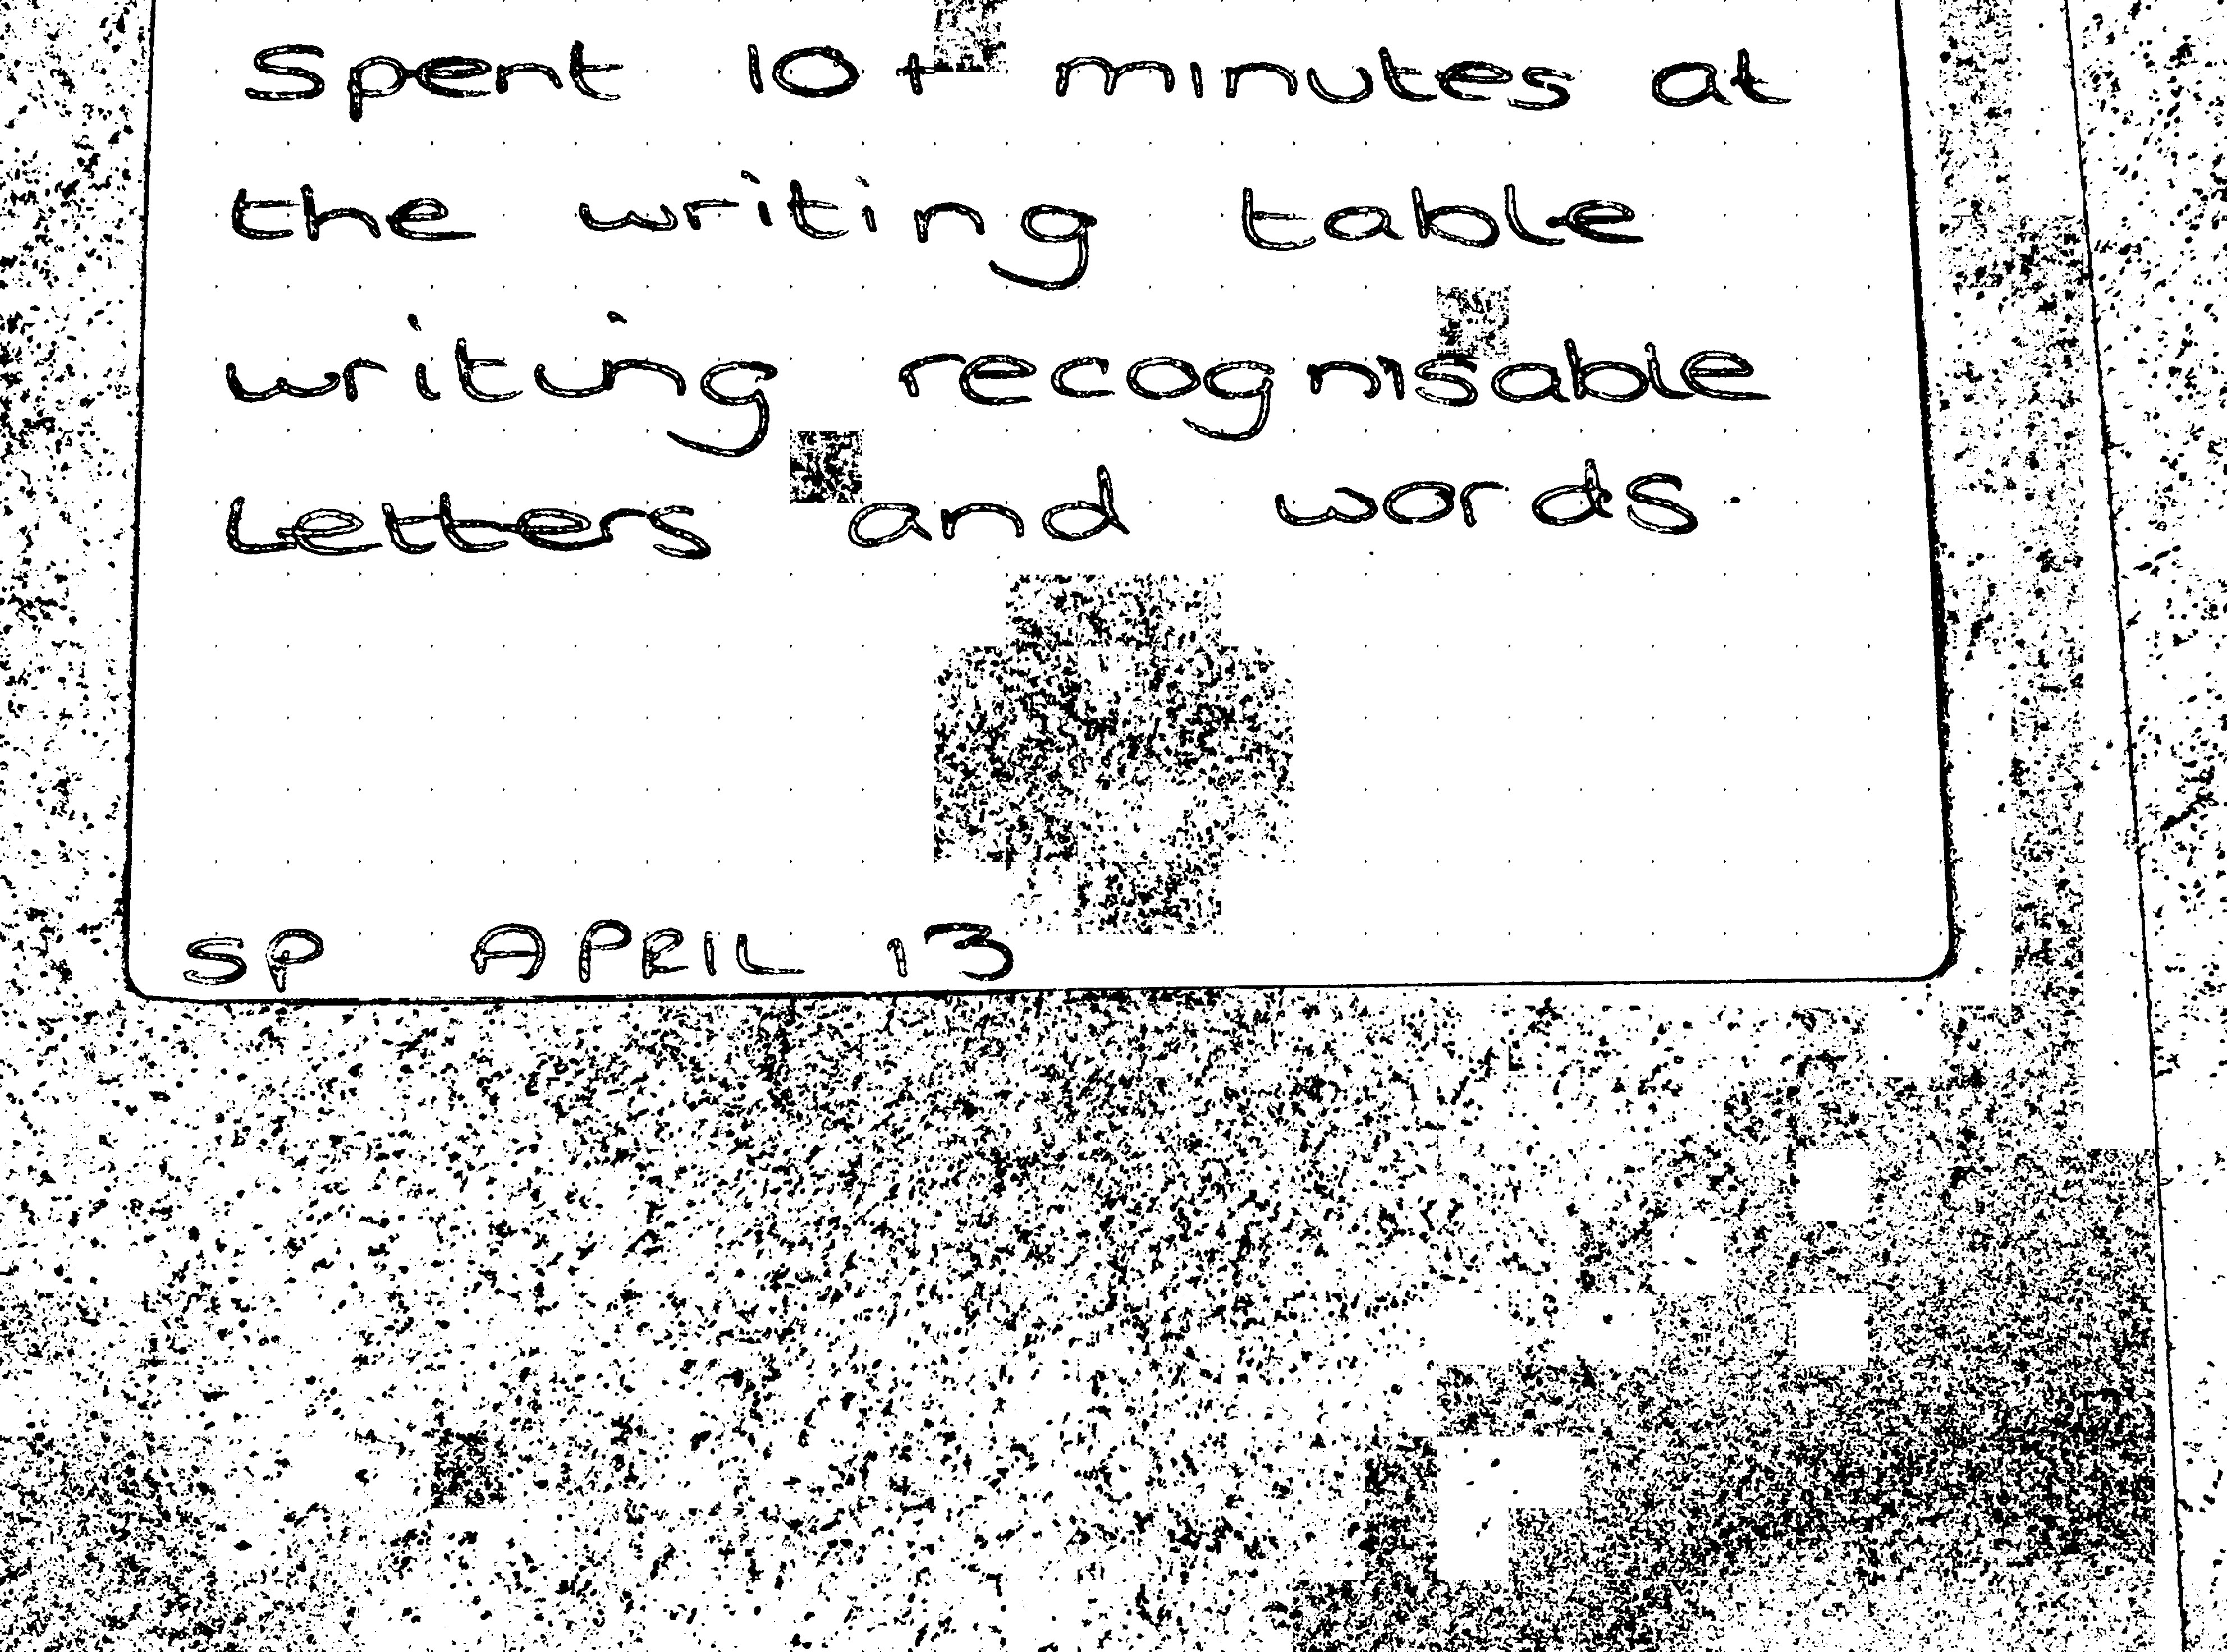 Spent 10+ minutes at
the writing table
writing recognisable
Letters and words.
SP APRIL 13